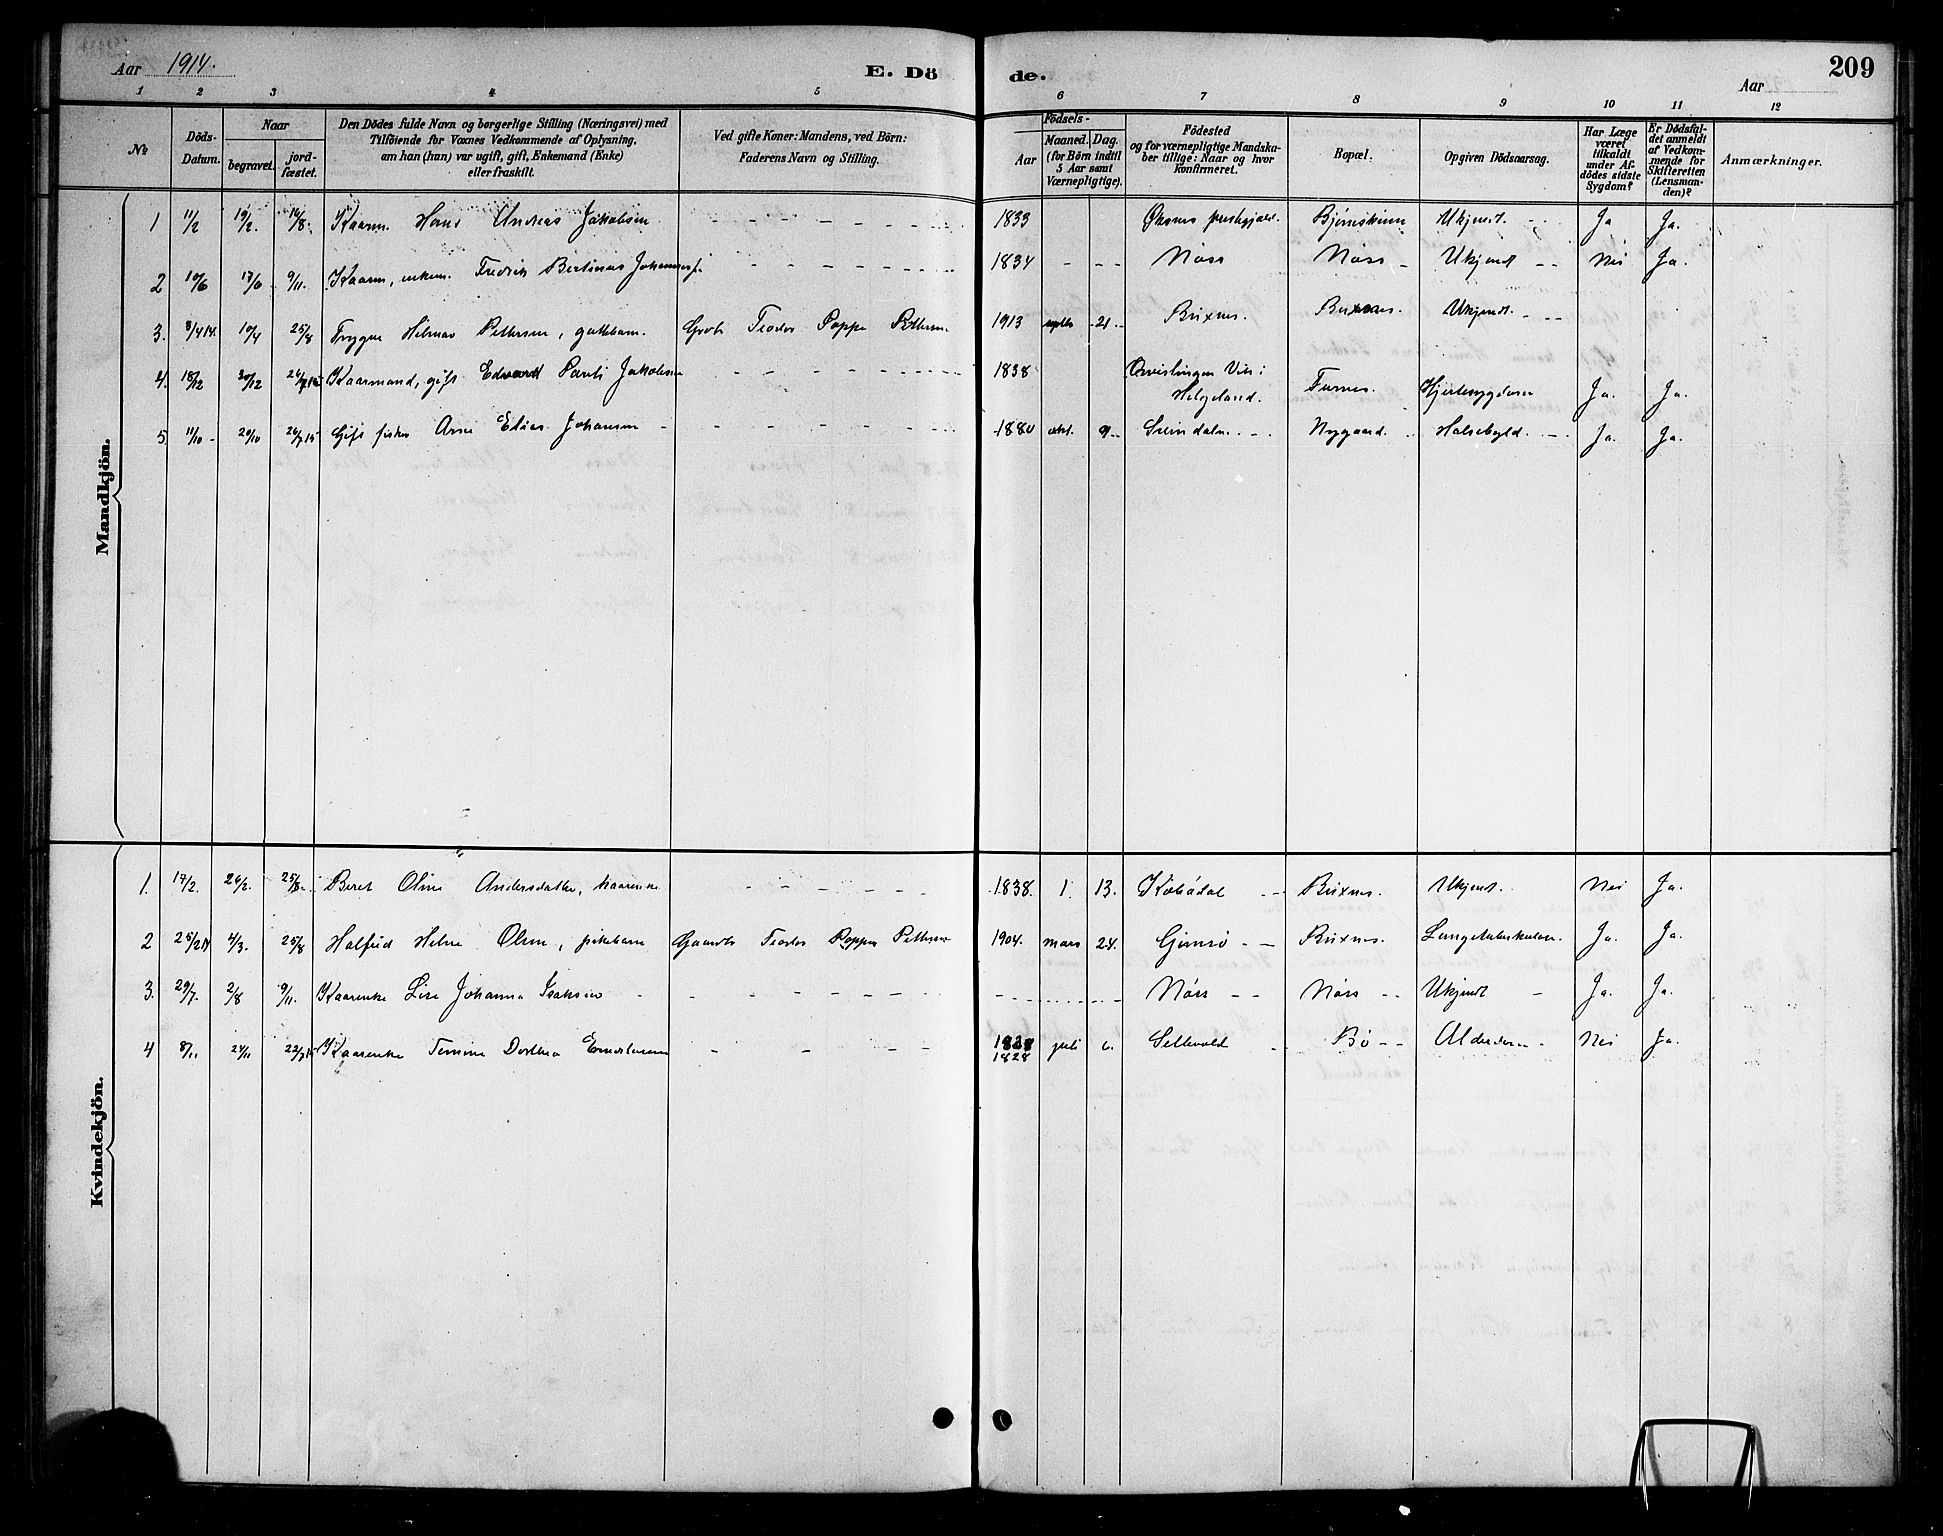 Aar 1914.
E. Dö
de.
Aar
209
1 2 3 4 5 6 7 8 9 10 11 12
№
Döds-
Datum.
Naar
begravet.
jord-
fæstet.
Den Dödes fulde Navn og borgerlige Stilling (Næringsvei) med
Tilföiende for Voxnes Vedkommende af Oplysning,
om han (hun) var ugift, gift, Enkemand (Enke)
eller fraskilt.
Ved gifte Koner: Mandens, ved Börn:
Faderens Navn og Stilling.
Födsels-
Aar
Maaned. Dag.
(for Börn indtil
5 Aar samt
Værnepligtige).
Födested
og for værnepligtige Mandska-
ber tillige: Naar og hvor
konfirmeret.
Bopæl.
Opgiven Dödsaarsag.
Har Læge
været
tilkaldt
under Af-
dödes sidste
Sygdom?
Er Dödsfal-
det anmeldt
af Vedkom-
mende for
Skifteretten
(Lensman-
den)?
Anmærkninger.
Mandkjön.
1 11/2 19/2. 16/8. Kaarm. Hans Andreas Jakobsen - - - - 1833 Øksnes Bjørnskinn Ukjendt. - Ja Ja.
2 10/6 17/6 9/11. Kaarm, enkem. Fredrik Bertinus - - - - 1834 - - - Nøss Nøss - Ukjendt - - Nei Ja.
3. 3/4 14. 10/4 25/8 Trygve Hilmar Pettersen, guttebarn. Teodor Poppe Pettersen 1913 21 Buxnes. Buxnes. Ukjendt. - -
4. 18/12 30/12 Kaarmand, gift Edvard Jakobsen - - - - 1838
Helgeland. Furnes. Ja. Ja.
5. 11/10 - 20/10 26/7 15 Gift fisker Elias Johansen - - - - 1880 okt. 9 - Nygaard. Halsebyld. - Ja. Ja.
Kvindekjön.
1. 17/2. 26/2. 25/8. Beret Oline Andersdatter, kaarenke - - - - 1838. 1. 13. Kobbdal - - Buxnes. Ukjendt. Nei Ja.
2 25/2 14 4/3. 25/8 Halfrid Helene Olsen, pikebarn Teodor Poppe Pettersen 1904. mars 24. Gimsø - - Buxnes. Lungetuberkulose. Ja. Ja.
3. 29/7. 2/8 9/11. Kaarenke Lise Johanna Isaksen - - - - Nøss - - Nøss - - Ukjendt - Ja. Ja.
4 8/11 24/11 22/7 15 Kaarenke Dorthea - - - - 1828 juli 6. Sellevold - Bø - - Alderdom - Nei Ja.